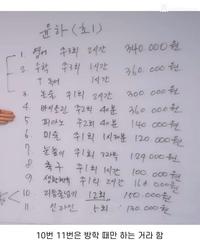 윤하 (초1)
1. 영어 주3회 2시간 340.000원
2. 수학 주3회 1시간
국어 1시간 360.000원
3. 논술 주1회 2시간 300.000원
4. 바이올린 주2회 40분 360.000원
5. 피아노 주2회 40분 140.000원
6. 미술 주1회 1시간 120.000원
7. 주1회 139.000원
8. 축구 주1회 1시간 100.000원
9. 생활체육 주1회 2시간 160.000원
10. 12회 150.000원
11. 인라인 5회 130.000원
10번 11번은 방학 때만 하는 거라 함